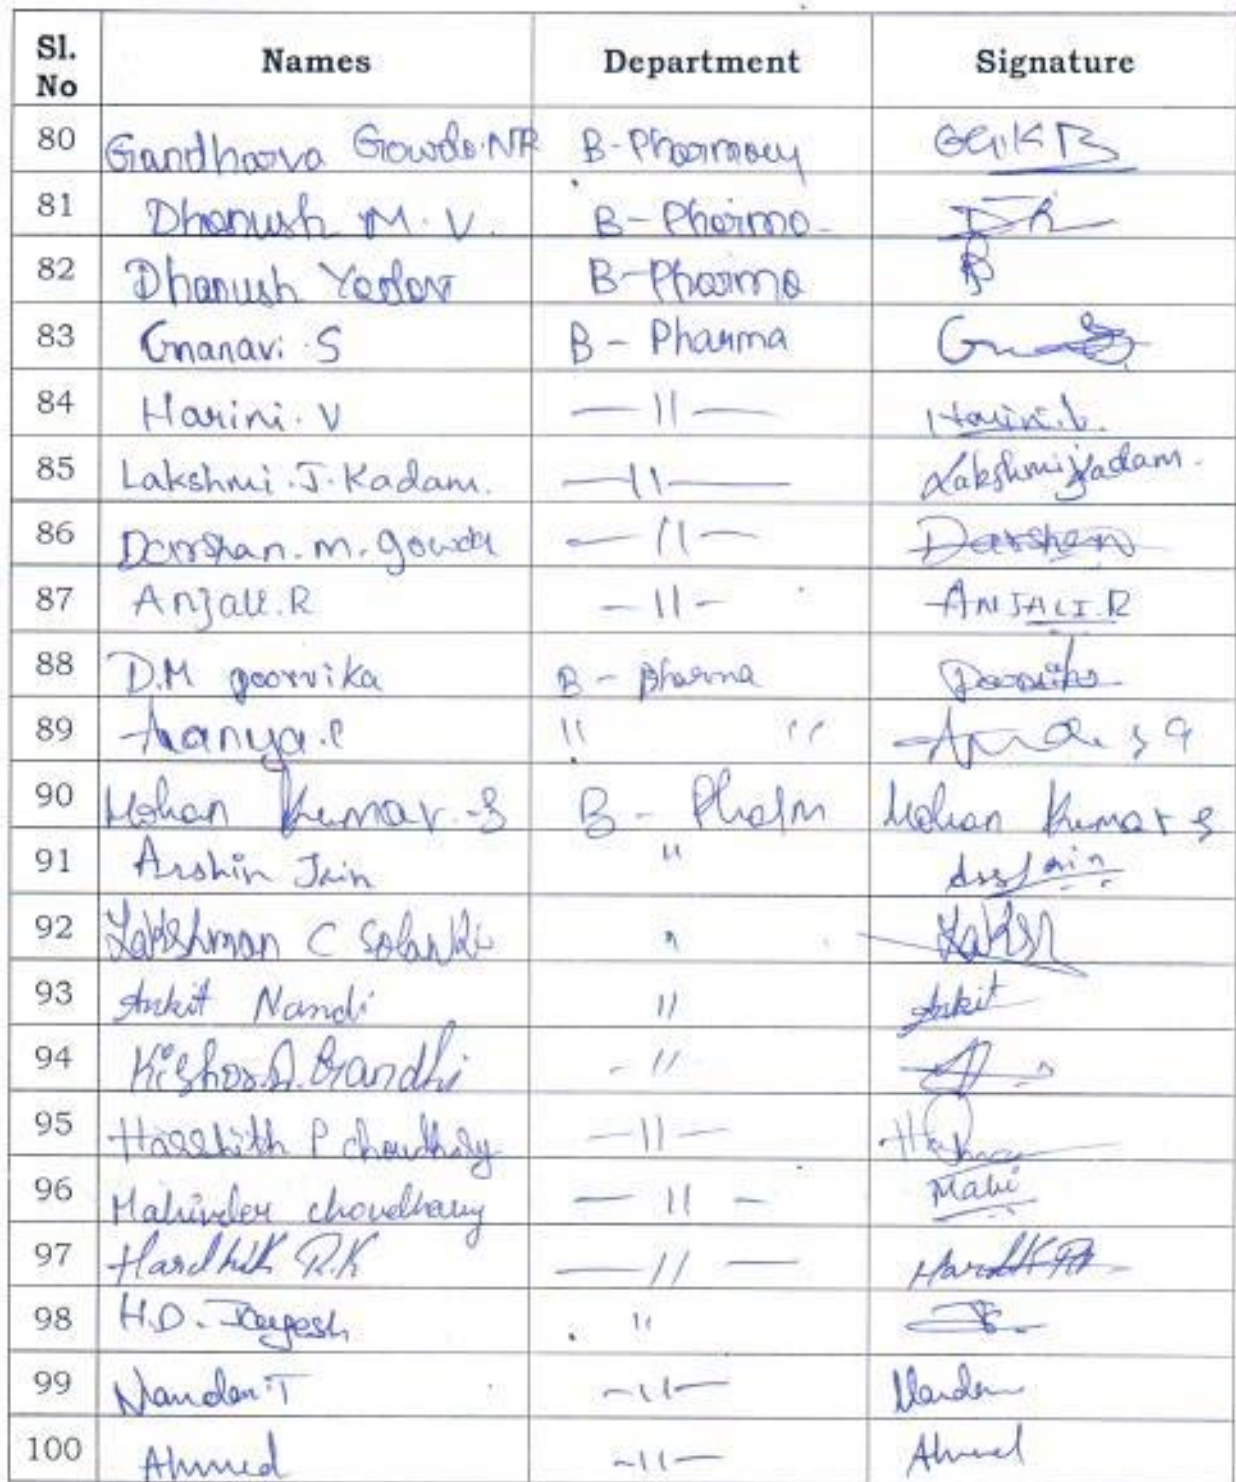 Sl. No Names Department Signature
80 Gandharva Gowda.NR B-Pharmacy
81 Dhanush M.V. B-Pharma
82 Dhanush Yadav B-Pharma
83 Gnanavi.S B-Pharma
84 Harini.V —11— Harini.V.
85 Lakshmi.J.Kadam. —11— Lakshmi Kadam.
86 Darshan.m.gowda —11— Darshan
87 Anjali.R —11— ANJALI.R
88 D.M poorvika B-pharma
89 11 11
90 Mohan Kumar.S B-Pharm Mohan Kumar S
91 Arshin Jain 11
92 Lakshman C Solanki 11 Laksh
93 Ankit Nandi 11 Ankit
94 Kishor Gandhi 11
95 P choudhary —11—
96 Mahinder choudhary —11— Mahi
97 Hardhik R.K —11—
98 H.D. Jayesh 11
99 Nandan.T —11—
100 Ahmed —11— Ahmed